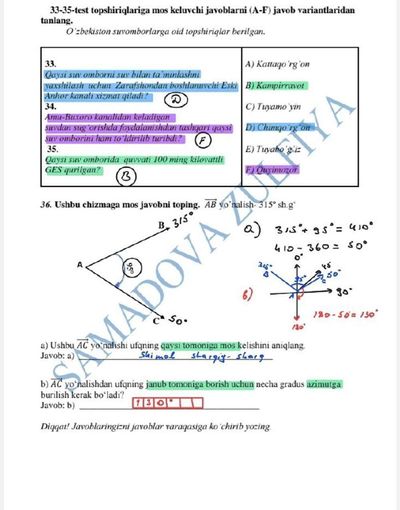 33-35-test topshiriqlariga mos keluvchi javoblarni (A-F) javob variantlaridan
tanlang.
O'zbekiston suvomborlarga oid topshiriqlar berilgan.
33.
Qaysi suv omborni suv bilan ta'minlashni
yaxshilash uchun Zarafshondan boshlanuvchi Eski
Anhor kanali xizmat qiladi?
D
34.
Amu-Buxoro kanalidan keladigan
suvdan sug'orishda foydalanishdan tashqari qaysi
suv omborini ham to'ldirilib turibdi?
F
35.
Qaysi suv omborida quvvati 100 ming kilovattli
GES qurilgan?
B
A) Kattaqo'rg'on
B) Kampirravot
C) Tuyamo'yin
D) Chimqo'rg'on
E) Tuyabo'g'iz
F) Quyimozor
36. Ushbu chizmaga mos javobni toping. AB yo'nalish- 315° sh.g'
B 315°
A
95°
C 50°
a) 315° + 95° = 410°
410 - 360 = 50°
0°
315°
B
45
50°
C
A
90°
180°
б)
180-50=130°
a) Ushbu AC yo'nalishi ufqning qaysi tomoniga mos kelishini aniqlang.
Javob: a) Shimol sharqiy-sharq
b) AC yo'nalishdan ufqning janub tomoniga borish uchun necha gradus azimutga
burilish kerak bo'ladi?
Javob: b) 130°
Diqqat! Javoblaringizni javoblar varaqasiga ko'chirib yozing.
SAMADOVA ZULFIYA